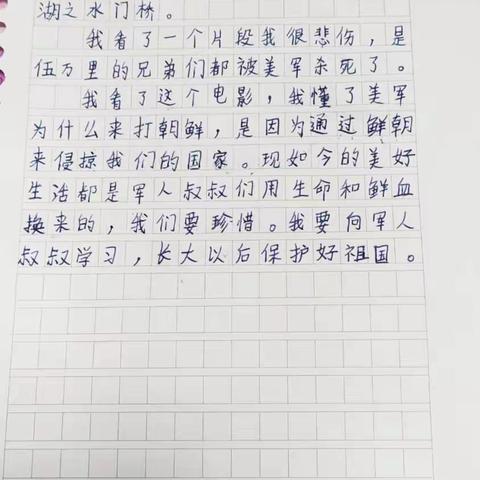 湖之水门桥。
我看了一个片段我很悲伤，是
伍万里的兄弟们都被美军杀死了。
我看了这个电影，我懂了美军
为什么来打朝鲜，是因为通过鲜朝
来侵掠我们的国家。现如今的美好
生活都是军人叔叔们用生命和鲜血
换来的，我们要珍惜。我要向军人
叔叔学习，长大以后保护好祖国。